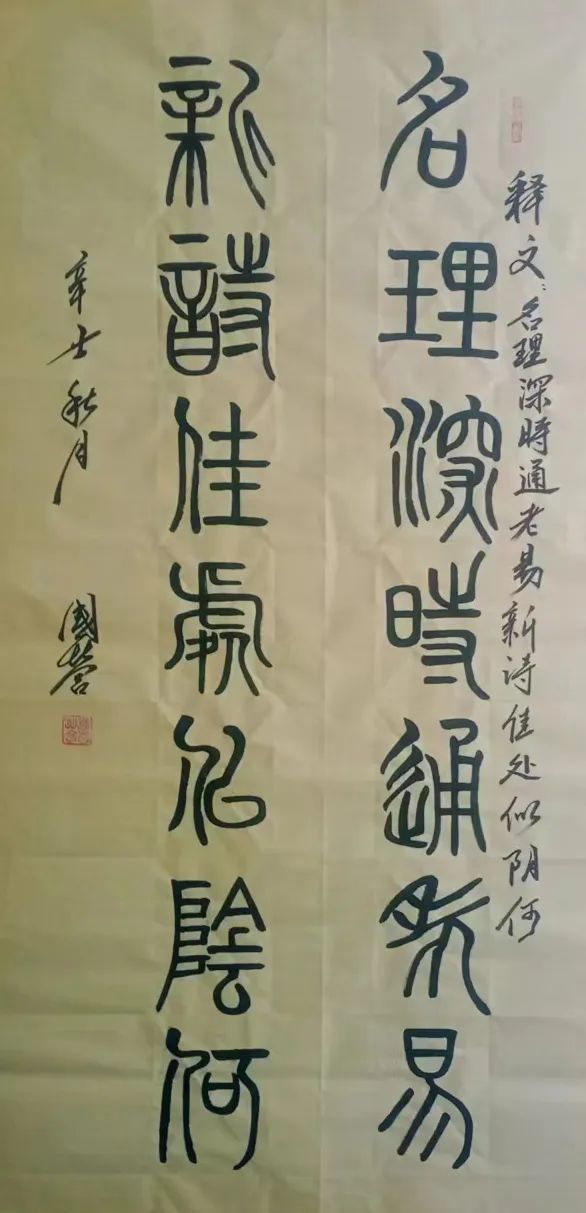 释文：名理深時通老易新诗佳处似阴何
名理深時通老易
新詩佳處佀陰何
辛丑秋月 國營